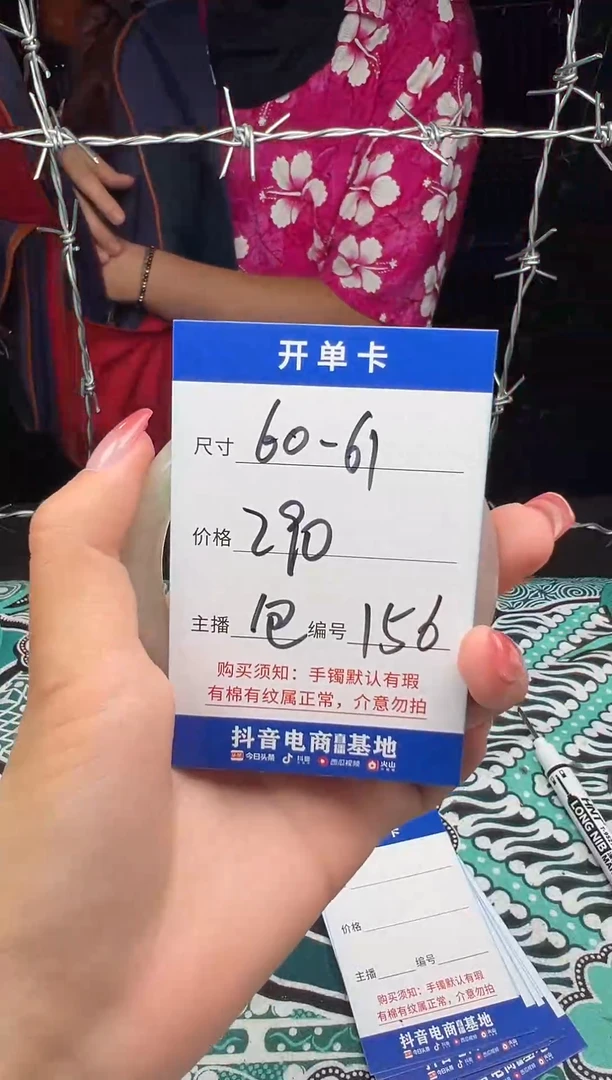 开单卡
尺寸 60-61
价格 290
主播 包 编号 156
购买须知：手镯默认有瑕
有棉有纹属正常，介意勿拍
抖音电商直播基地
今日头条 抖音 西瓜视频 火山
LONG NIB
价格
主播 编号
购买须知：手镯默认有瑕
有棉有纹属正常，介意勿拍
抖音电商直播基地
今日头条 抖音 西瓜视频 火山